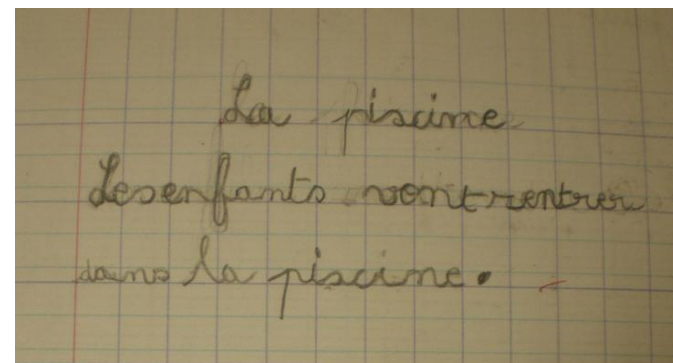 La piscine
Les enfants vont rentrer
dans la piscine.